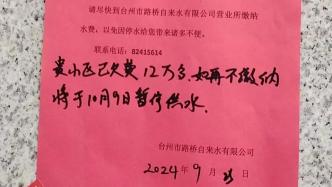 请尽快到台州市路桥自来水有限公司营业所缴纳
水费,以免因停水给您带来诸多不便。
联系电话:82415614
贵小区已欠费12万多,如再不缴纳
将于10月9日暂停供水.
台州市路桥自来水有限公司
2024年9月 日